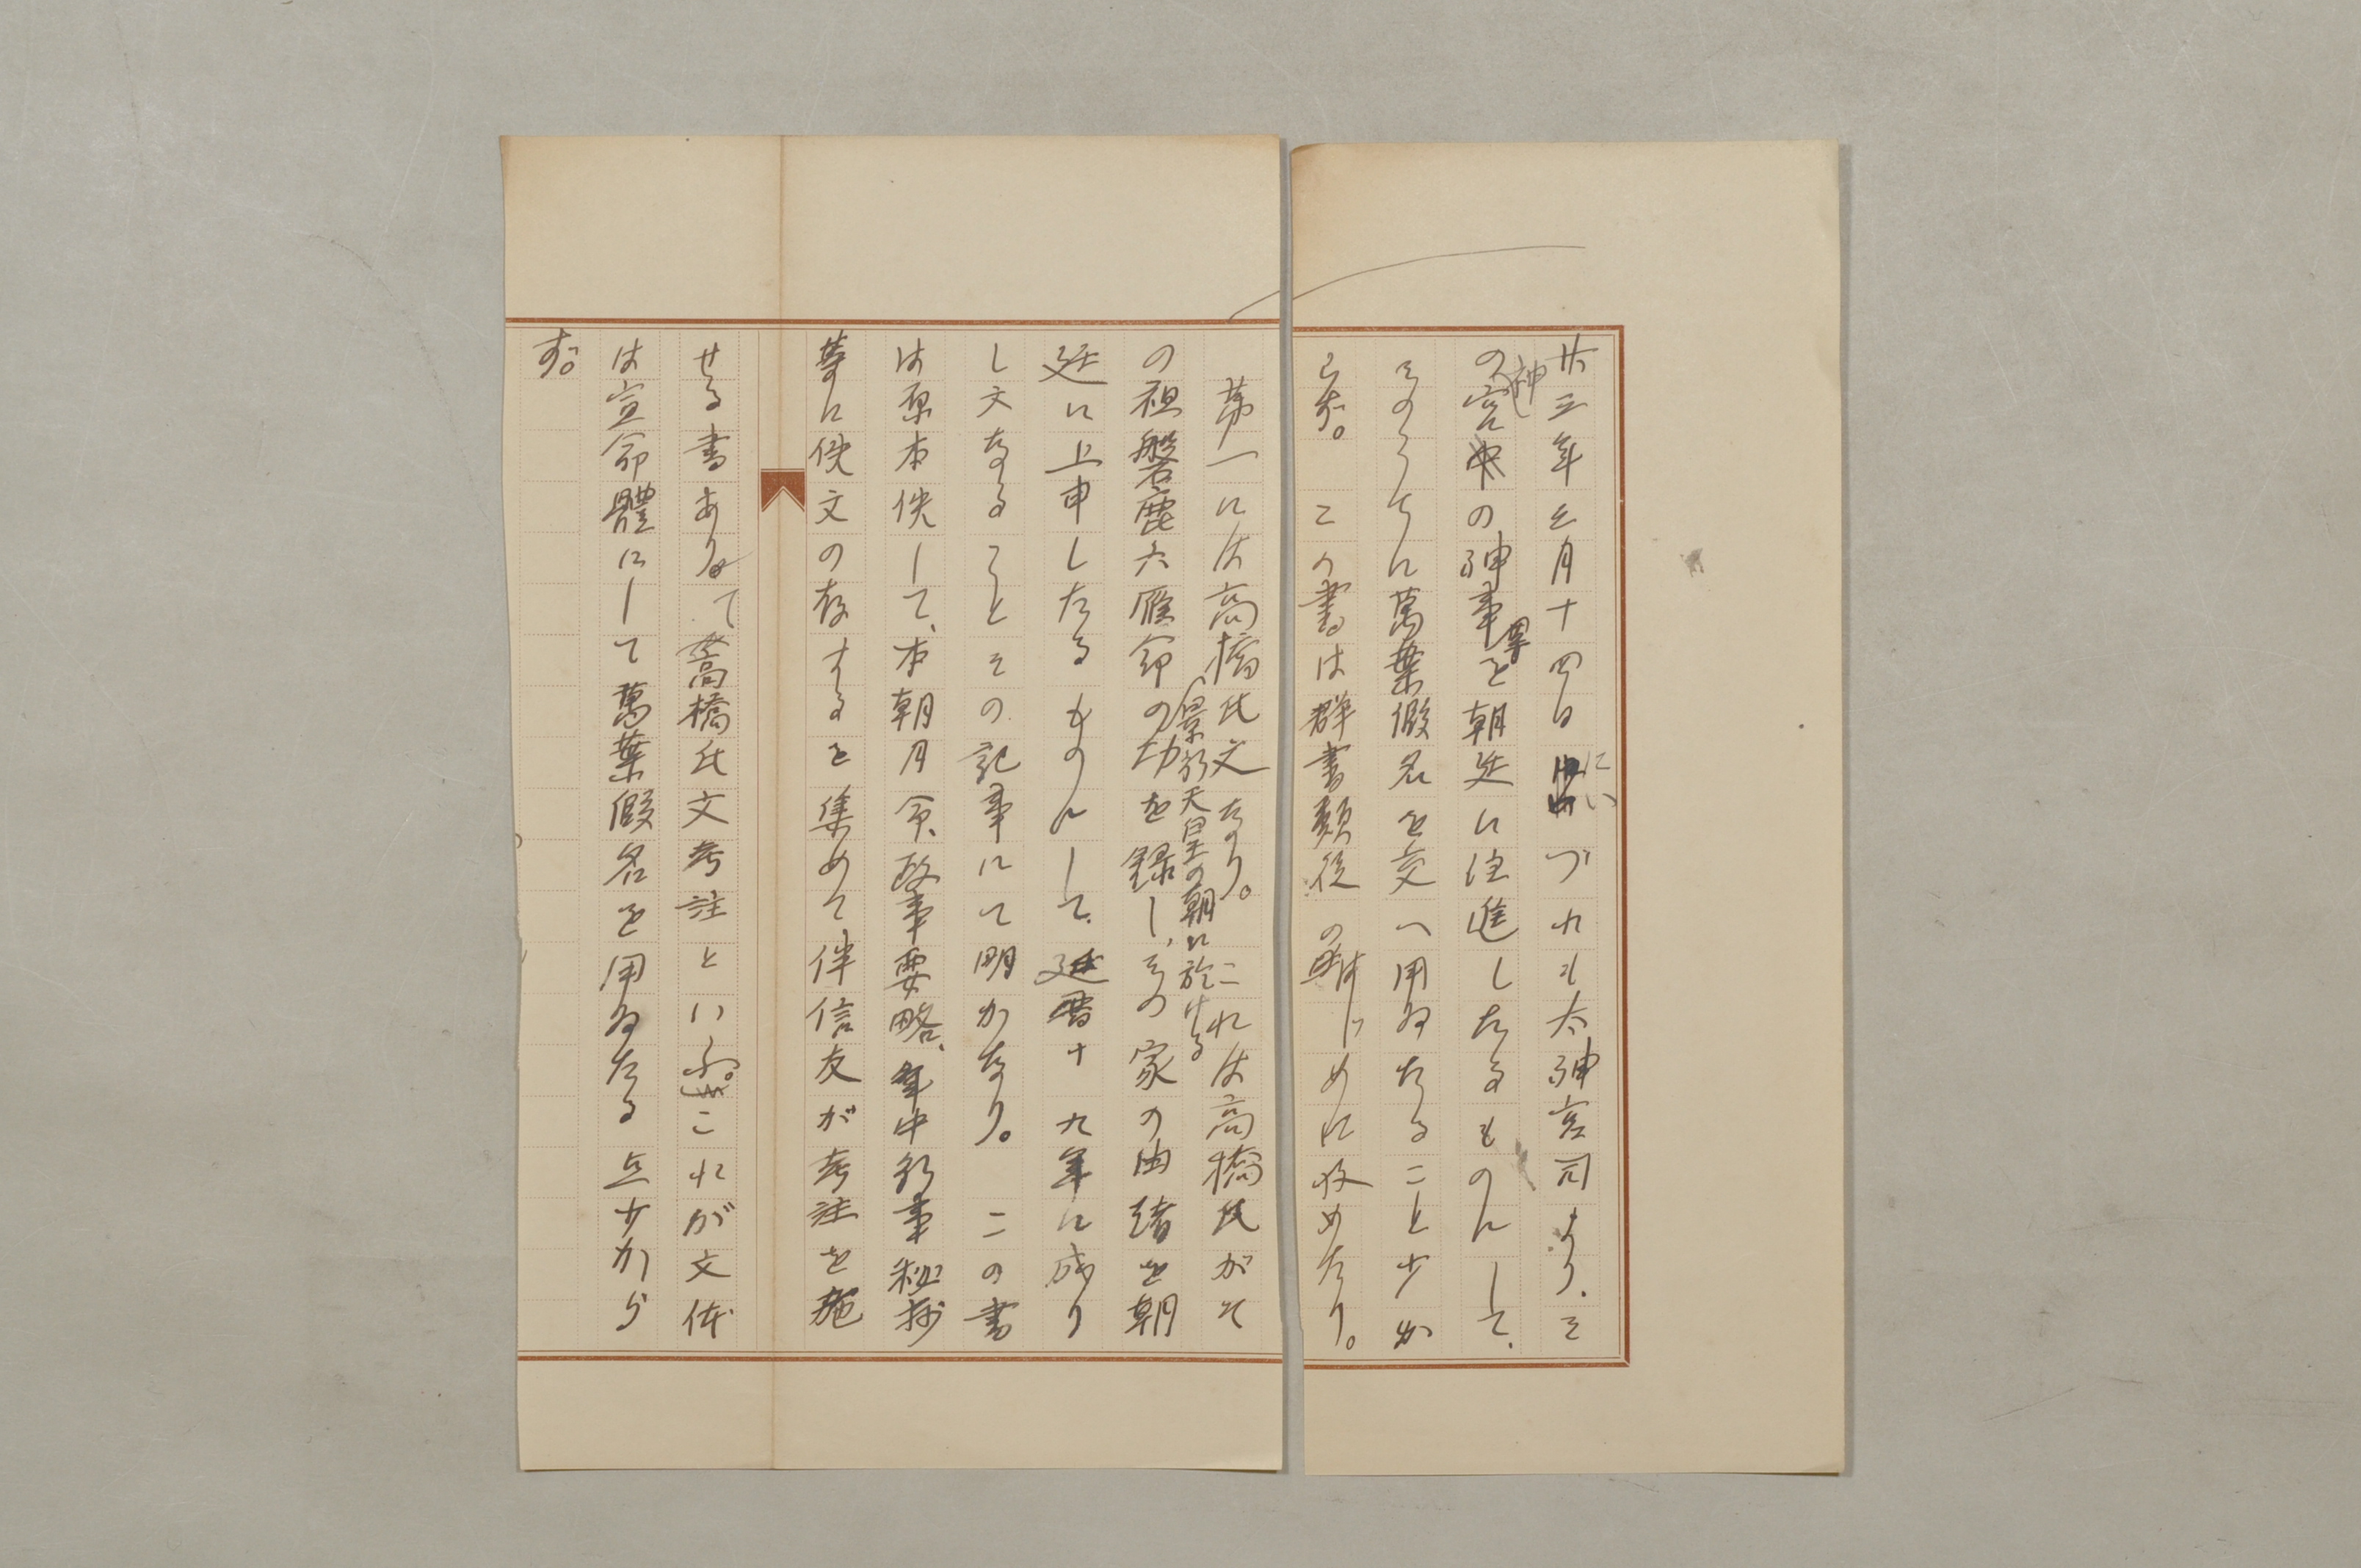 廿三年七月十四日にいづれも太神宮司より、そ
の神宮の神事等を朝廷に注進したるものにして、
そのうちに萬葉假名を交へ用ゐたること少か
らず。この書は群書類從のはじめに收めたり。
第一には高橋氏文なり。これは高橋氏がそ
の祖磐鹿六雁命の景行天皇の朝に於ける功を録し、その家の由緒を朝
廷に上申したるものにして、延暦十九年に成り
し文なることその記事にて明かなり。この書
は原本佚して、本朝月令、政事要略、年中行事秘抄
等に佚文の存するを集めて伴信友が考註を施
せる書ありて高橋氏文考註といふ。これが文体
は宣命體にして萬葉假名を用ゐたる点少から
ず。